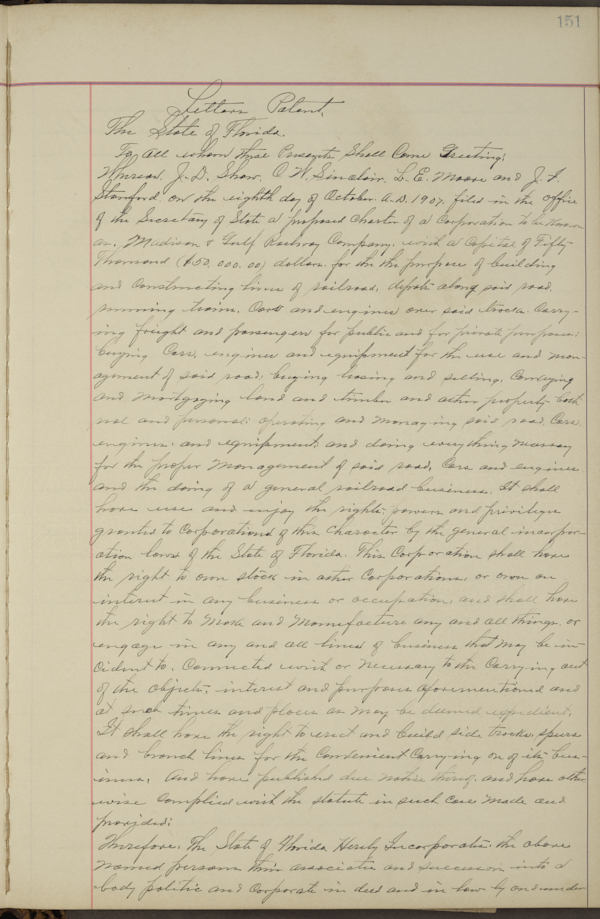 151
Letters Patent,
The State of Florida.
To All whom these Presents Shall Come Greeting:
Whereas. J. D. Shaw, O. W. Sinclair. L. E. Moore and J. F.
Stanford. on the eighth day of October. A.D. 1907. filed in the office
of the Secretary of State a proposed Charter of a Corporation to be known
as. Madison & Gulf Railway Company. with a Capital of Fifty
Thousand ($50,000.00) dollars. for the the purpose of building
and Constructing lines of railroad, depots along said road.
running trains, Cars and engines over said tracks. Carry-
ing freight and passengers for public and for private purposes;
buying Cars, engines and equipment for the use and man-
agement of said road; buying leasing and selling, Conveying
and mortgaging land and timber and other property both
real and personal: operating and managing said road. Cars.
engines. and equipment. and doing everything necessary
for the proper Management of said road, Cars and engines
and the doing of a general railroad business. It shall
have use and enjoy the rights, powers and privileges
granted to Corporations of this Character by the general incorpor-
ation laws of the State of Florida. This Corporation shall have
the right to own stock in other Corporations, or own an
interest in any business or occupation, and shall have
the right to Make and Manufacture any and all things, or
engage in any and all lines of business that may be in-
cident to. Connected with or necessary to the Carrying out
of the objects, interest and purposes aforementioned and
at such times and places as may be deemed expedient.
It shall have the right to erect and build side tracks, spurs
and branch lines for the Convenient Carrying on of its bus-
iness, And have published due notice thereof, and have other
wise Complied with the statute in such Case Made and
provided;
Therefore. The State of Florida Hereby Incorporates. the above
named persons their associates and successors into a
body politic and Corporate in deed and in law by and under